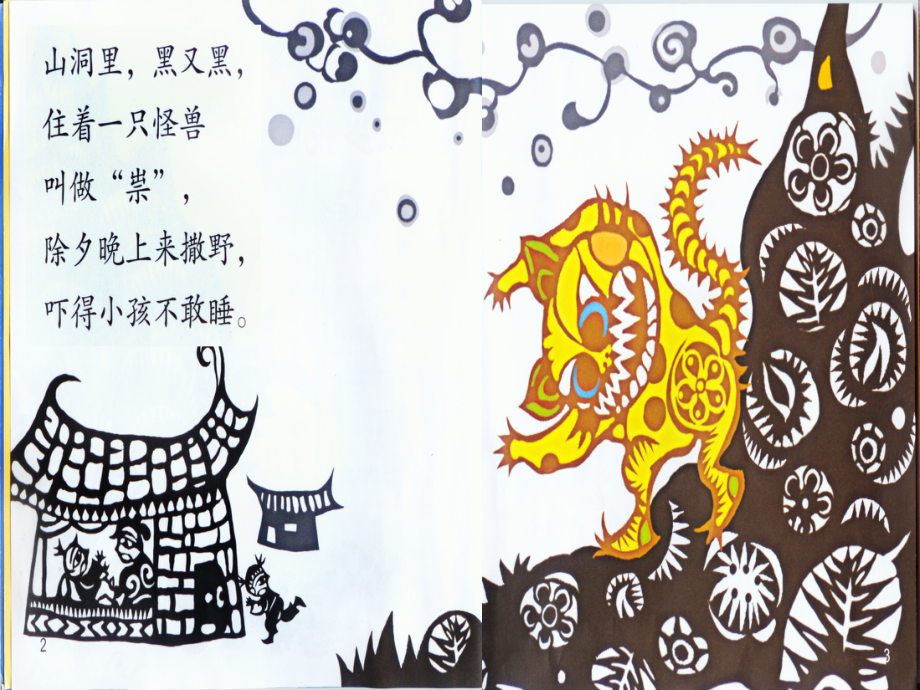 山洞里，黑又黑，
住着一只怪兽
叫做“祟”，
除夕晚上来撒野，
吓得小孩不敢睡。
2
3